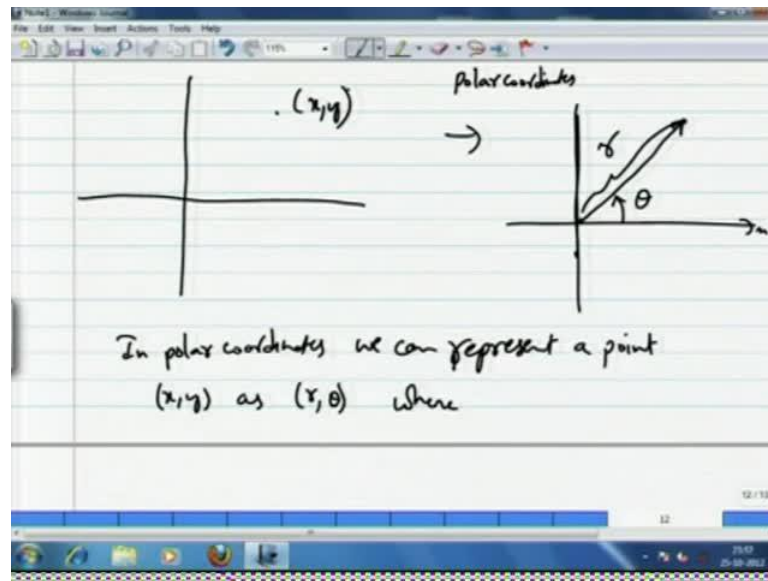 Note1 - Windows Journal
File Edit View Insert Actions Tools Help
115%
polar coordinates
(x,y)
r
θ
In polar coordinates we can represent a point
(x,y) as (r,θ) where
12
25-10-2012